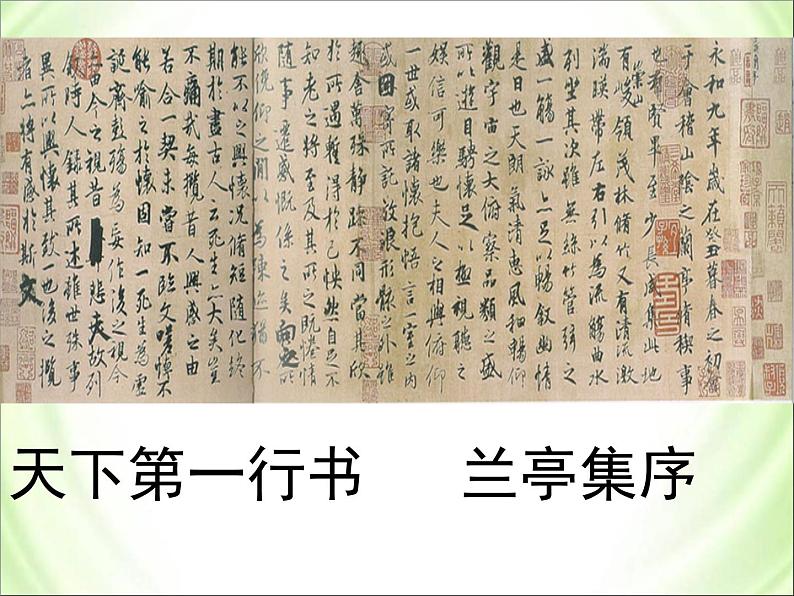 永和九年歲在癸丑暮春之初會
于會稽山陰之蘭亭脩稧事
也羣賢畢至少長咸集此地
有崇山峻領茂林脩竹又有清流激
湍暎帶左右引以為流觴曲水
列坐其次雖無絲竹管弦之
盛一觴一詠亦足以暢叙幽情
是日也天朗氣清惠風和暢仰
觀宇宙之大俯察品類之盛
所以遊目騁懷足以極視聽之
娛信可樂也夫人之相與俯仰
一世或取諸懷抱悟言一室之內
或因寄所託放浪形骸之外雖
趣舍萬殊靜躁不同當其欣
於所遇暫得於己怏然自足不
知老之將至及其所之既惓情
隨事遷感慨係之矣向之所
欣俛仰之間以為陳迹猶不
能不以之興懷況脩短隨化終
期於盡古人云死生亦大矣豈
不痛哉每攬昔人興感之由
若合一契未嘗不臨文嗟悼不
能喻之於懷固知一死生為虛
誕齊彭殤為妄作後之視今
亦由今之視昔悲夫故列
叙時人錄其所述雖世殊事
異所以興懷其致一也後之攬
者亦將有感於斯文
天下第一行书 兰亭集序